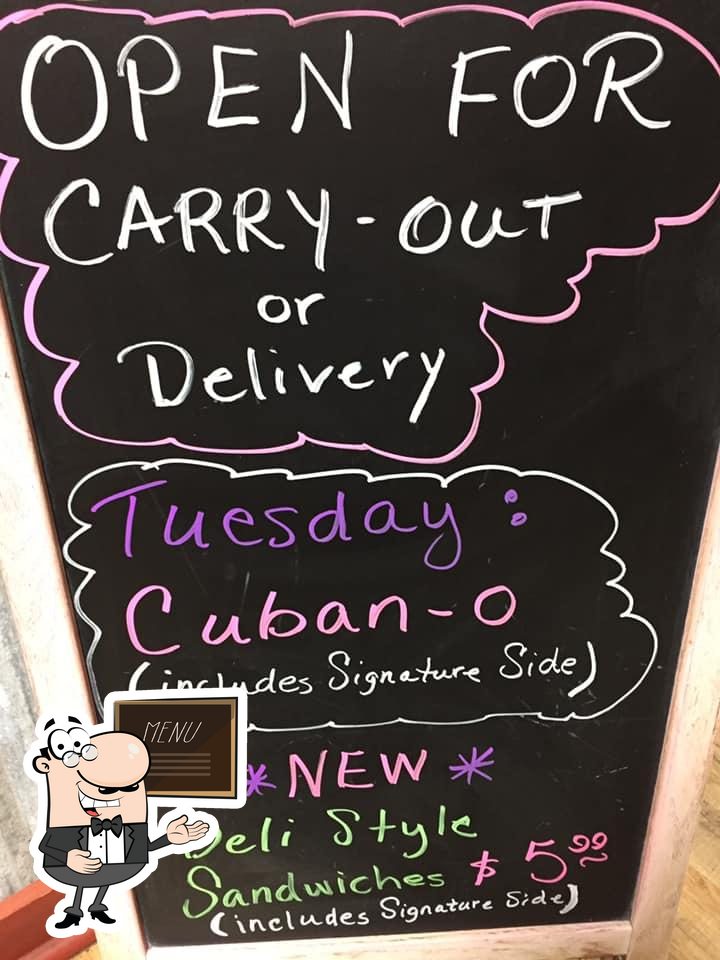 OPEN FOR
CARRY-OUT
or
Delivery
Tuesday:
Cuban-o
(includes Signature Side)
MENU
* NEW *
Deli Style
Sandwiches $5.99
(includes Signature Side)